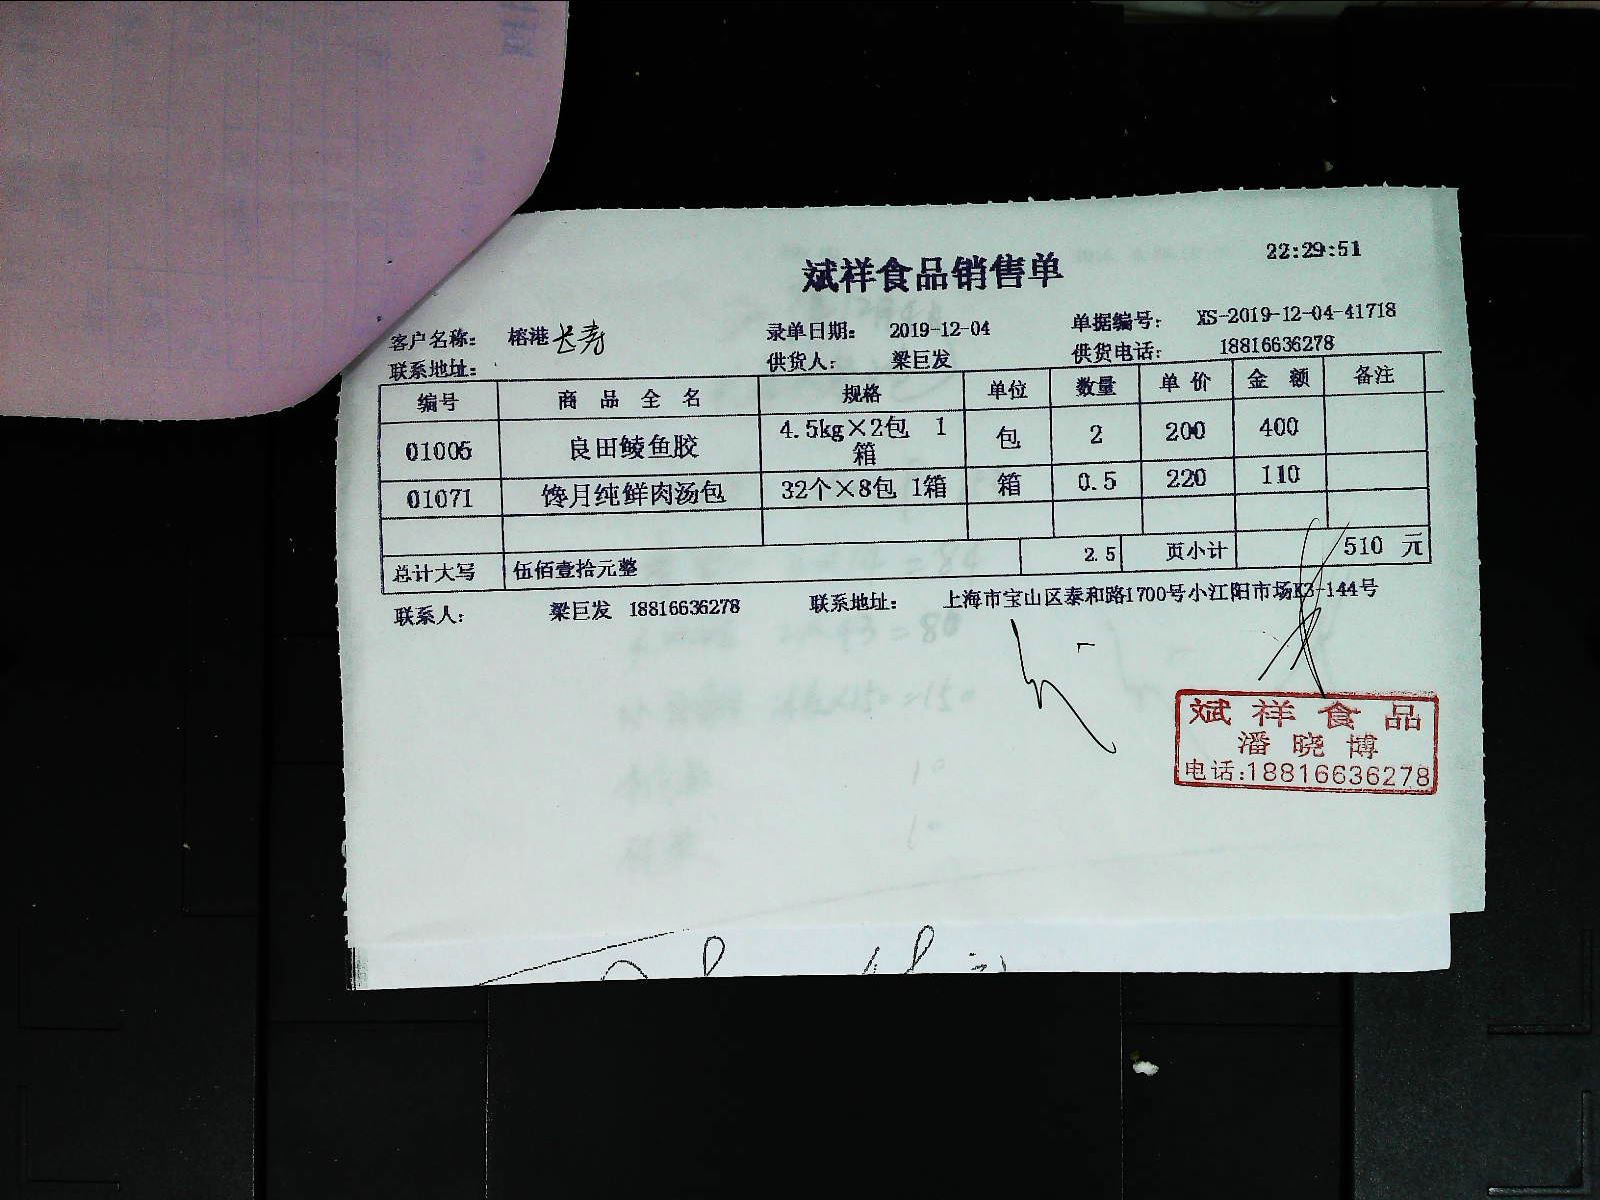 22:29:51
斌祥食品销售单
客户名称： 榕港长寿 录单日期： 2019-12-04 单据编号： XS-2019-12-04-41718
联系地址： 供货人： 梁巨发 供货电话： 18816636278
编号 商品全名 规格 单位 数量 单价 金额 备注
01005 良田鲮鱼胶 4.5kg×2包 1箱 包 2 200 400
01071 馋月纯鲜肉汤包 32个×8包 1箱 箱 0.5 220 110
总计大写 伍佰壹拾元整 2.5 页小计 510 元
联系人： 梁巨发 18816636278 联系地址： 上海市宝山区泰和路1700号小江阳市场K3-144号
斌祥食品
潘晓博
电话:18816636278